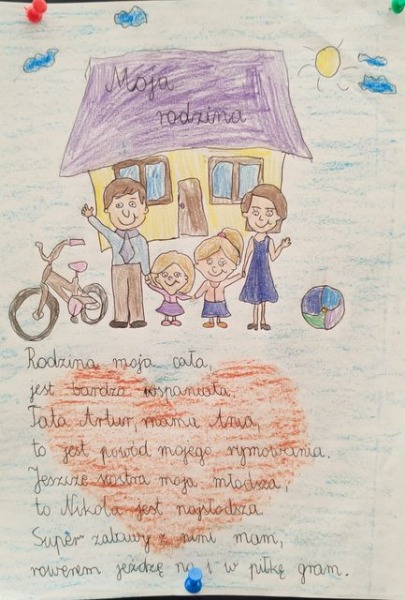 Moja
rodzina
Rodzina moja cała,
jest bardzo wspaniała.
Tata Artur, mama Ania,
to jest powód mojego rymowania.
Jeszcze siostra moja młodsza,
to Nikola jest najsłodsza.
Super zabawy z nimi mam,
rowerem jeżdżę i w piłkę gram.